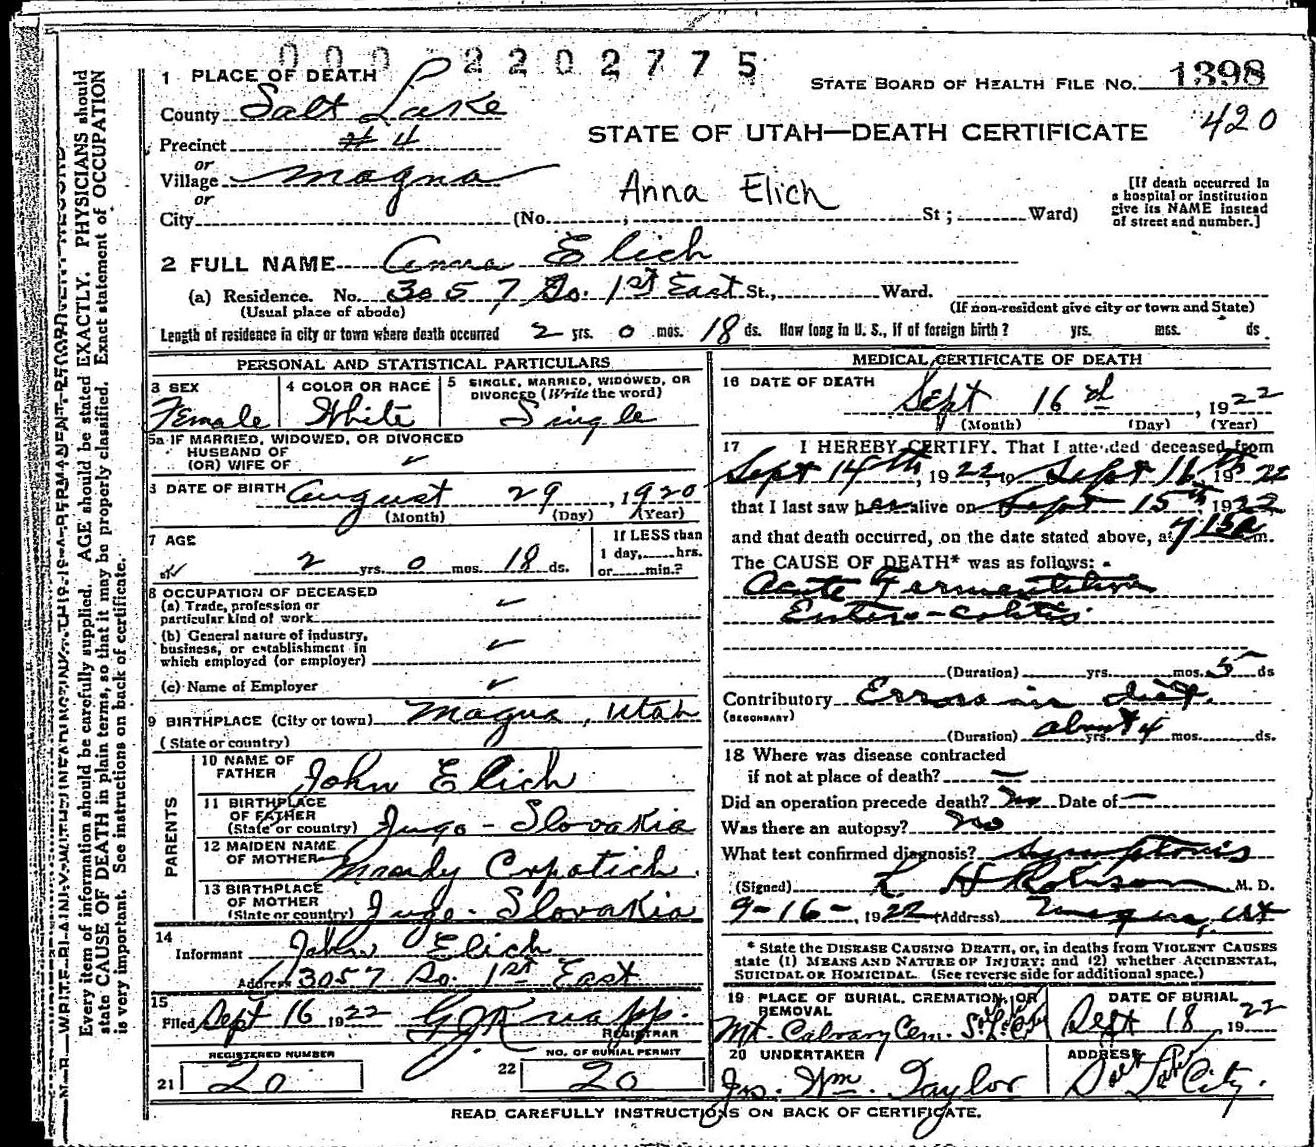 0 0 0 2 2 0 2 7 7 5
STATE BOARD OF HEALTH FILE NO. 1398
420
STATE OF UTAH—DEATH CERTIFICATE
1 PLACE OF DEATH
County Salt Lake
Precinct #4
or
Village Magna
or
City (No. , St ; Ward)
Anna Elich
[If death occurred in
a hospital or institution
give its NAME instead
of street and number.]
2 FULL NAME Anna Elich
(a) Residence. No. 3057 So. 1st East St., Ward.
(Usual place of abode)
(If non-resident give city or town and State)
Length of residence in city or town where death occurred 2 yrs. 0 mos. 18 ds. How long in U. S., if of foreign birth? yrs. mos. ds
PERSONAL AND STATISTICAL PARTICULARS
3 SEX
Female
4 COLOR OR RACE
White
5 SINGLE, MARRIED, WIDOWED, OR
DIVORCED (Write the word)
Single
5a IF MARRIED, WIDOWED, OR DIVORCED
HUSBAND OF
(OR) WIFE OF
DATE OF BIRTH August 29, 1920
(Month) (Day) (Year)
7 AGE
2 yrs. 0 mos. 18 ds.
If LESS than
1 day, hrs.
or min.?
8 OCCUPATION OF DECEASED
(a) Trade, profession or
particular kind of work
(b) General nature of industry,
business, or establishment in
which employed (or employer)
(c) Name of Employer
9 BIRTHPLACE (City or town) Magna, Utah
(State or country)
PARENTS
10 NAME OF
FATHER John Elich
11 BIRTHPLACE
OF FATHER
(State or country) Jugo-Slovakia
12 MAIDEN NAME
OF MOTHER Mandy Crpatich
13 BIRTHPLACE
OF MOTHER
(State or country) Jugo-Slovakia
14
Informant John Elich
Address 3057 So. 1st East
15
Filed Sept 16 1922 G J Knapp
REGISTRAR
REGISTERED NUMBER
21 20
NO. OF BURIAL PERMIT
22 20
MEDICAL CERTIFICATE OF DEATH
16 DATE OF DEATH
Sept 16 , 1922
(Month) (Day) (Year)
17 I HEREBY CERTIFY, That I attended deceased from
Sept 14th, 1922, to Sept 16th 1922
that I last saw her alive on Sept 15th, 1922
and that death occurred, on the date stated above, at 715a m.
The CAUSE OF DEATH* was as follows:
Acute Fermentative
Entero-colitis
(Duration) yrs. mos. 5 ds
Contributory Errors in diet.
(SECONDARY)
(Duration) about yrs. 4 mos. ds.
18 Where was disease contracted
if not at place of death? —
Did an operation precede death? No Date of —
Was there an autopsy? No
What test confirmed diagnosis? Symptoms
(Signed) L H Robinson M. D.
9-16-, 1922 (Address) Magna, Ut
* State the DISEASE CAUSING DEATH, or, in deaths from VIOLENT CAUSES
state (1) MEANS AND NATURE OF INJURY; and (2) whether ACCIDENTAL,
SUICIDAL OR HOMICIDAL. (See reverse side for additional space.)
19 PLACE OF BURIAL, CREMATION, OR
REMOVAL
Mt. Calvary Cem. S. L. City
DATE OF BURIAL
Sept 18, 1922
20 UNDERTAKER
Jos. Wm. Taylor
ADDRESS
Salt Lake City.
READ CAREFULLY INSTRUCTIONS ON BACK OF CERTIFICATE.
N. B.—WRITE PLAINLY, WITH UNFADING INK—THIS IS A PERMANENT RECORD
Every item of information should be carefully supplied. AGE should be stated EXACTLY. PHYSICIANS should
state CAUSE OF DEATH in plain terms, so that it may be properly classified. Exact statement of OCCUPATION
is very important. See instructions on back of certificate.